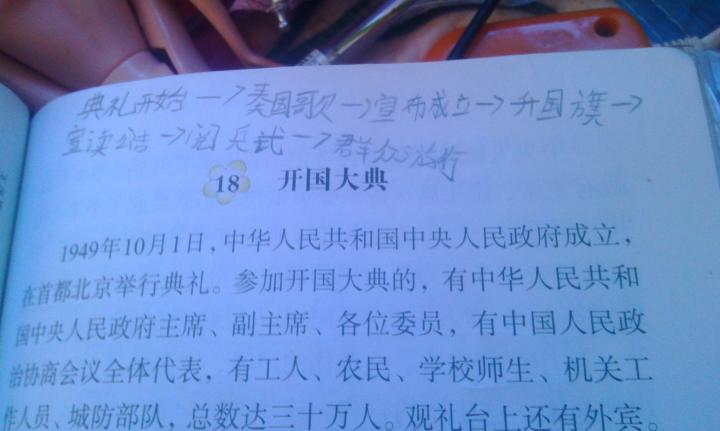 典礼开始→奏国歌→宣布成立→升国旗→
宣读公告→阅兵式→群众游行
18 开国大典
1949年10月1日，中华人民共和国中央人民政府成立，
在首都北京举行典礼。参加开国大典的，有中华人民共和
国中央人民政府主席、副主席、各位委员，有中国人民政
治协商会议全体代表，有工人、农民、学校师生、机关工
作人员、城防部队，总数达三十万人。观礼台上还有外宾。